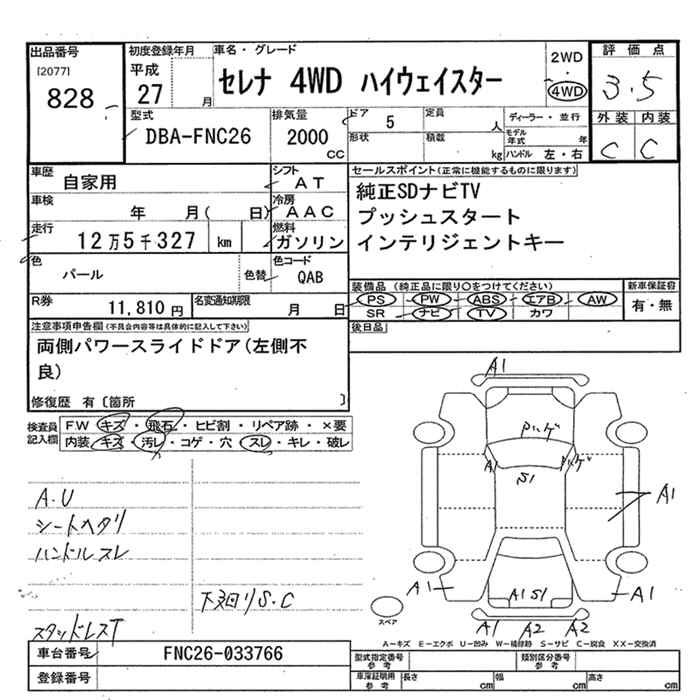 出品番号
[2077]
828
初度登録年月
平成
27 月
車名・グレード
セレナ 4WD ハイウェイスター
2WD
・
4WD
評価点
3.5
外装 内装
C C
型式
DBA-FNC26
排気量
2000
CC
ドア 5
形状
定員 人
積載 kg
ディーラー・並行
モデル年式 年
ハンドル 左・右
車歴
自家用
シフト
AT
車検
年 月( 日)
冷房
AAC
走行
12万5千327 km
燃料
ガソリン
色
パール
色替
色コード
QAB
R券
11,810円
名変通知期限
月 日
セールスポイント(正常に機能するものに限ります)
純正SDナビTV
プッシュスタート
インテリジェントキー
装備品 (純正品に限り○をつけてください)
PS PW ABS エアB AW
SR ナビ TV カワ
新車保証書
有・無
後日品
注意事項申告欄(不具合内容等は具体的に記入して下さい)
両側パワースライドドア(左側不
良)
修復歴 有〔箇所 〕
検査員
記入欄
FW キズ・飛石・ヒビ割・リペア跡・×要
内装 キズ・汚レ・コゲ・穴・スレ・キレ・破レ
A.U
シートヘタリ
ハンドルスレ
下廻りS.C
スタッドレスT
A1
ハゲ
A1
ハゲ
S1
A1
A1
A1 S1
A1
A1 A2 A2
スペア
A-キズ E-エクボ U-凹み W-補修跡 S-サビ C-腐食 XX-交換済
車台番号
FNC26-033766
登録番号
型式指定番号
参考
類別区分番号
参考
車庫証明用
参考
長さ cm
幅 cm
高さ cm